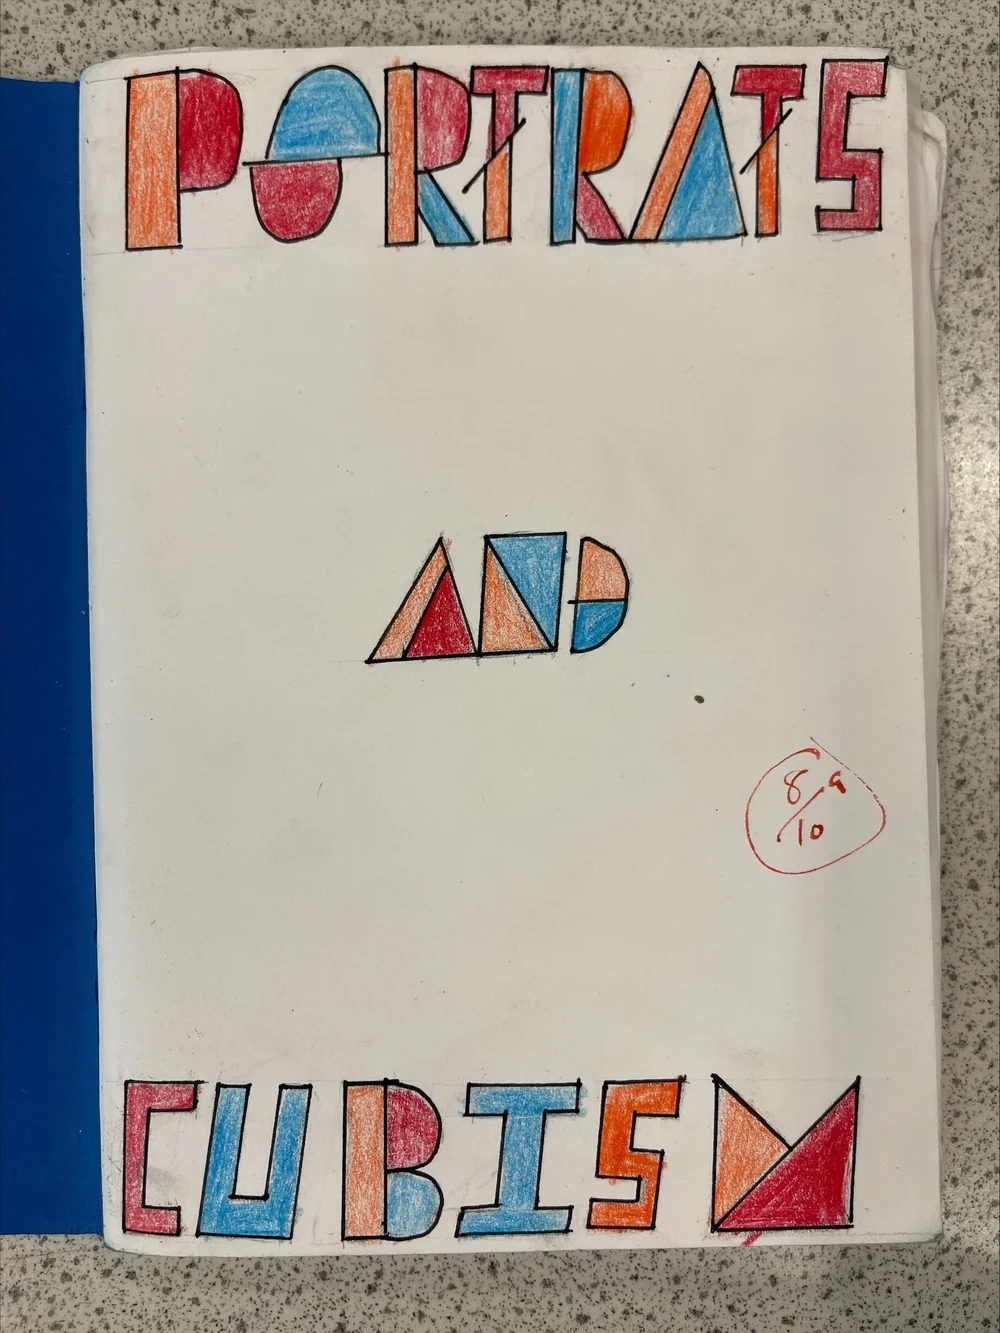 PORTRATS
AND
8.9
10
CUBISM